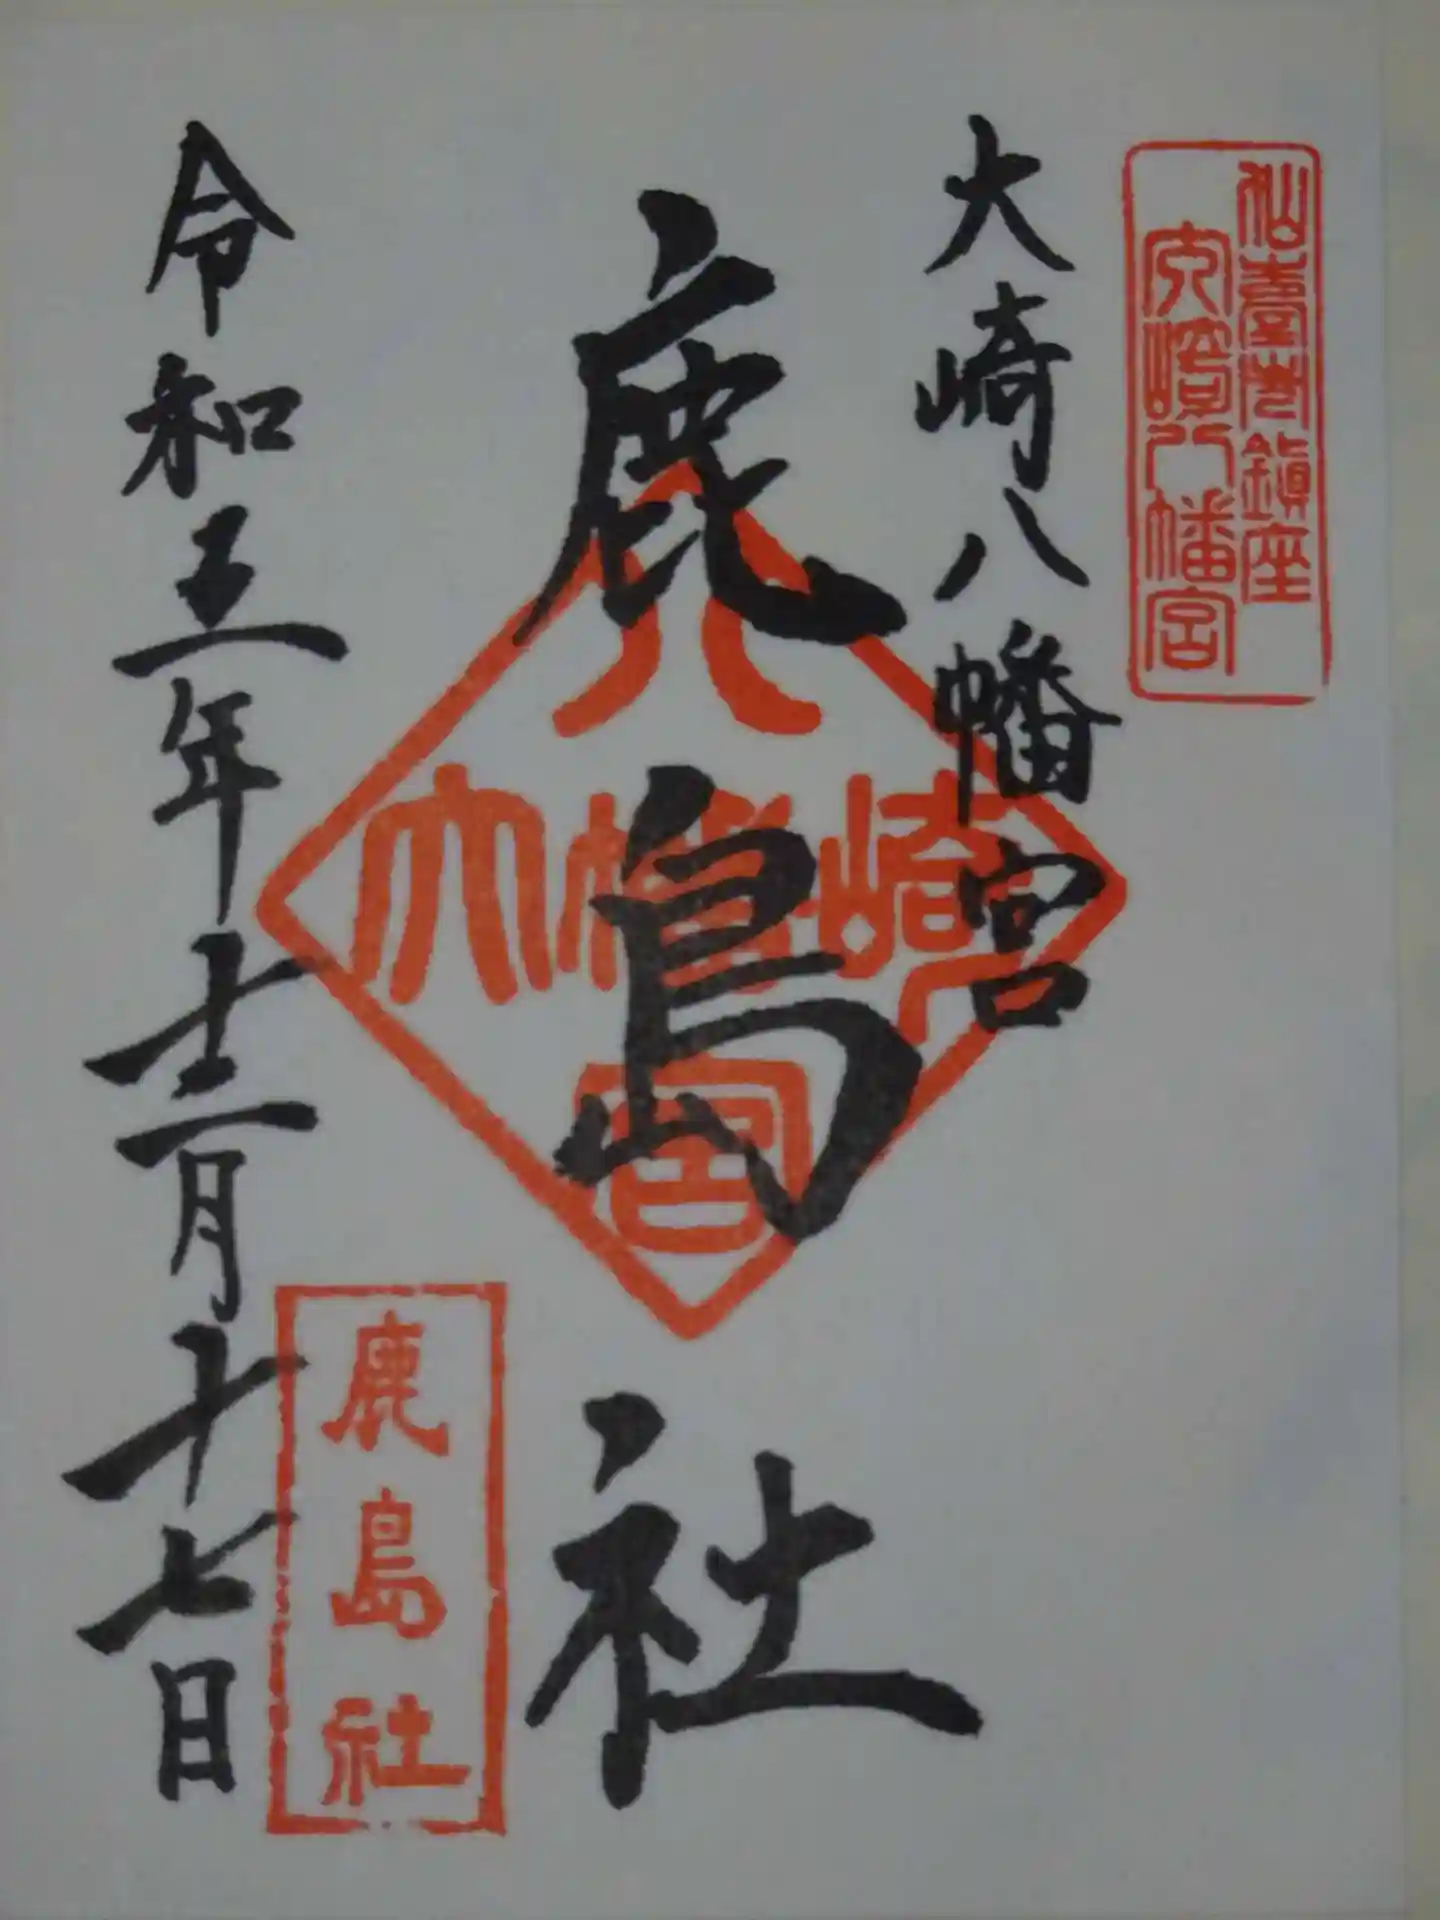 仙臺市鎮座
大崎八幡宮
大崎八幡宮
鹿島社
八
大幡崎
宮
鹿島社
令和五年十二月十七日